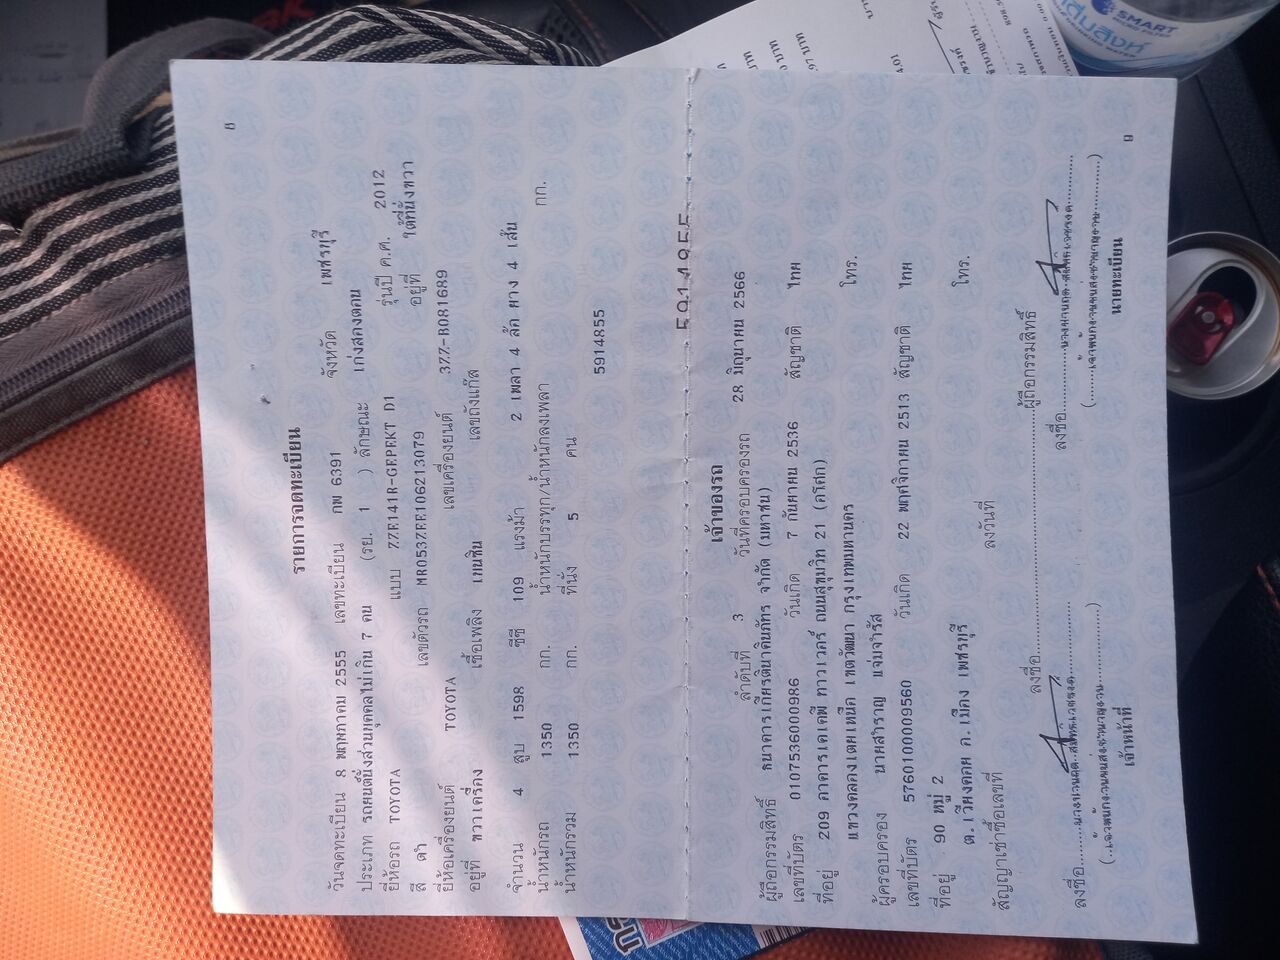 8
รายการจดทะเบียน
วันจดทะเบียน 8 พฤษภาคม 2555 เลขทะเบียน กพ 6391 จังหวัด เพชรบุรี
ประเภท รถยนต์นั่งส่วนบุคคลไม่เกิน 7 คน (รย. 1 ) ลักษณะ เก๋งสองตอน
ยี่ห้อรถ TOYOTA แบบ ZZE141R-GEPEKT D1 รุ่นปี ค.ศ. 2012
สี ดำ เลขตัวรถ MR053ZEE106213079 อยู่ที่ ใต้ที่นั่งขวา
ยี่ห้อเครื่องยนต์ TOYOTA เลขเครื่องยนต์ 3ZZ-B081689
อยู่ที่ ขวาเครื่อง เชื้อเพลิง เบนซิน เลขถังแก๊ส
จำนวน 4 สูบ 1598 ซีซี 109 แรงม้า 2 เพลา 4 ล้อ ยาง 4 เส้น
น้ำหนักรถ 1350 กก. น้ำหนักบรรทุก/น้ำหนักลงเพลา กก.
น้ำหนักรวม 1350 กก. ที่นั่ง 5 คน
5914855
5914955
เจ้าของรถ
ลำดับที่ 3 วันที่ครอบครองรถ 28 มิถุนายน 2566
ผู้ถือกรรมสิทธิ์ ธนาคารเกียรตินาคินภัทร จำกัด (มหาชน)
เลขที่บัตร 0107536000986 วันเกิด 7 กันยายน 2536 สัญชาติ ไทย
ที่อยู่ 209 อาคารเคเคพี ทาวเวอร์ ถนนสุขุมวิท 21 (อโศก) โทร.
แขวงคลองเตยเหนือ เขตวัฒนา กรุงเทพมหานคร
ผู้ครอบครอง นายสำราญ แจ่มจำรัส
เลขที่บัตร 5760100009560 วันเกิด 22 พฤศจิกายน 2513 สัญชาติ ไทย
ที่อยู่ 90 หมู่ 2 โทร.
ต.เวียงคอย อ.เมือง เพชรบุรี
สัญญาเช่าซื้อเลขที่ ลงวันที่
ลงชื่อ ผู้ถือกรรมสิทธิ์
ลงชื่อ ลงชื่อ
(..เจ้าพนักงานขนส่งชำนาญงาน..) (..เจ้าพนักงานขนส่งชำนาญงาน..)
เจ้าหน้าที่ นายทะเบียน
9
SMART